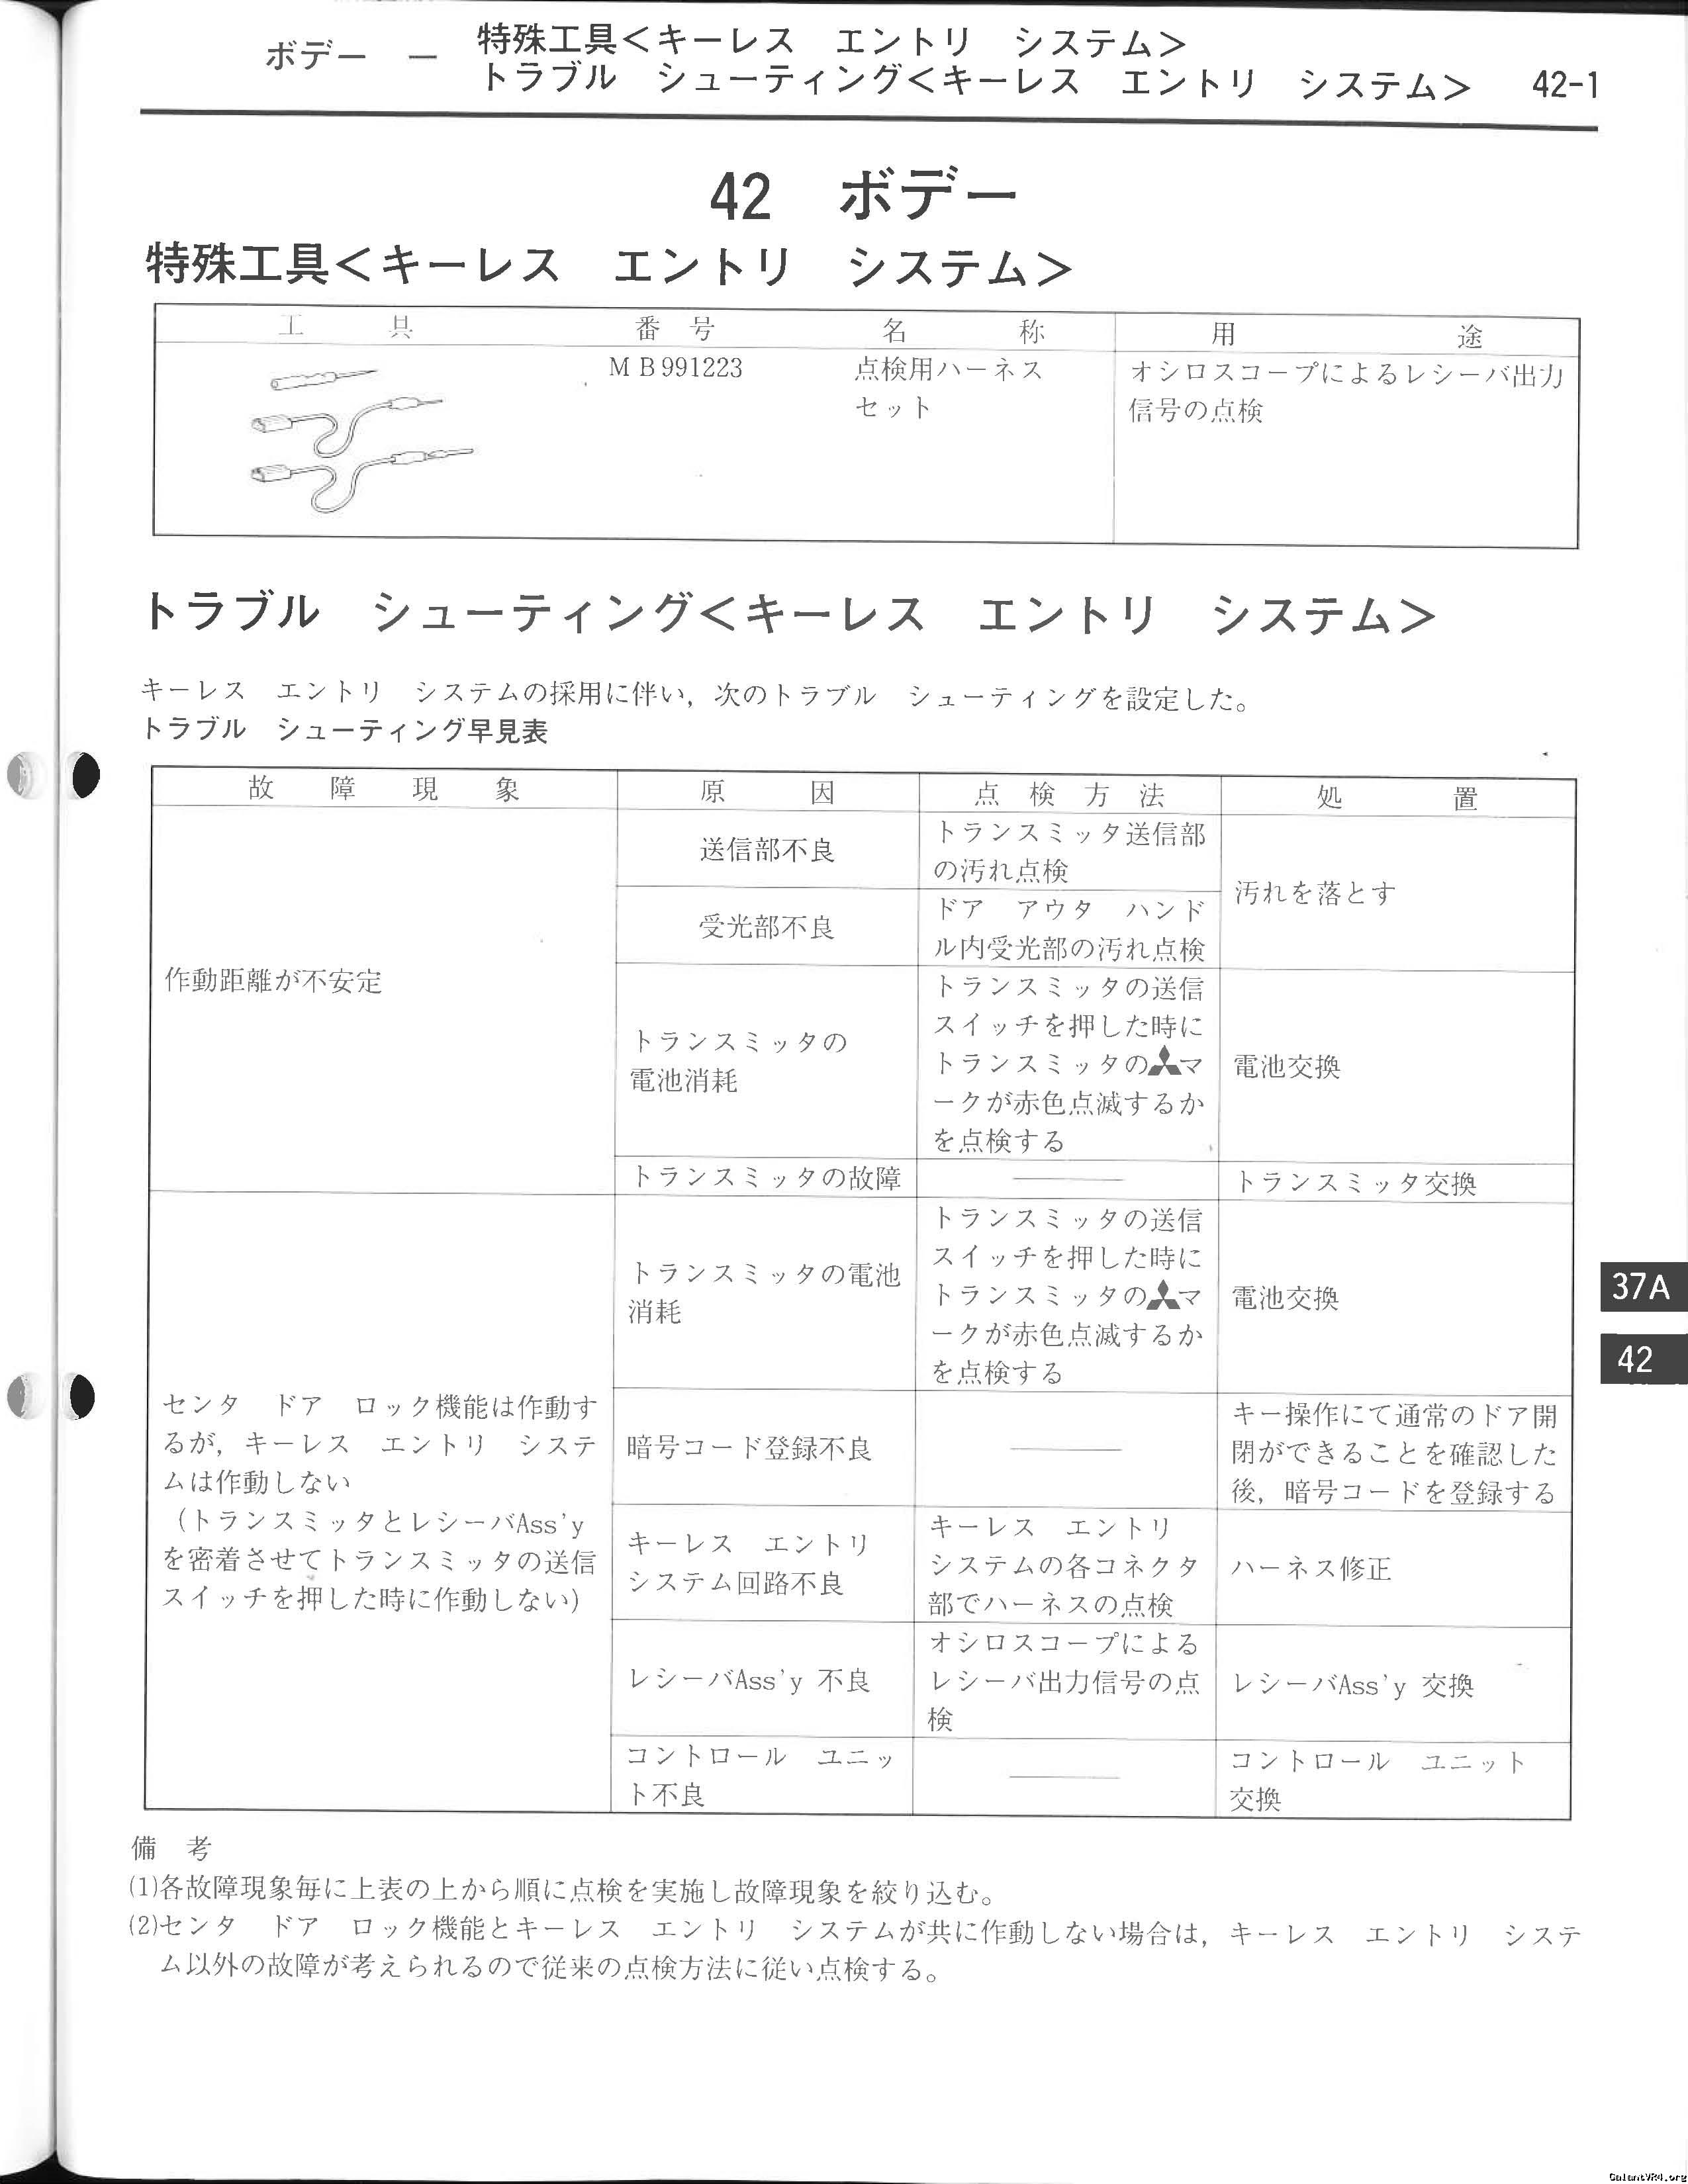 ボデー － 特殊工具＜キーレス　エントリ　システム＞
トラブル　シューティング＜キーレス　エントリ　システム＞　42-1
42　ボデー
特殊工具＜キーレス　エントリ　システム＞
工具　番号　名称　用途
ＭＢ991223　点検用ハーネス　オシロスコープによるレシーバ出力
セット　信号の点検
トラブル　シューティング＜キーレス　エントリ　システム＞
キーレス　エントリ　システムの採用に伴い，次のトラブル　シューティングを設定した。
トラブル　シューティング早見表
故障現象　原因　点検方法　処置
作動距離が不安定
送信部不良
トランスミッタ送信部
の汚れ点検
汚れを落とす
受光部不良
ドア　アウタ　ハンド
ル内受光部の汚れ点検
トランスミッタの
電池消耗
トランスミッタの送信
スイッチを押した時に
トランスミッタのマ
ークが赤色点滅するか
を点検する
電池交換
トランスミッタの故障
トランスミッタ交換
センタ　ドア　ロック機能は作動す
るが，キーレス　エントリ　システ
ムは作動しない
（トランスミッタとレシーバAss'y
を密着させてトランスミッタの送信
スイッチを押した時に作動しない）
トランスミッタの電池
消耗
トランスミッタの送信
スイッチを押した時に
トランスミッタのマ
ークが赤色点滅するか
を点検する
電池交換
暗号コード登録不良
キー操作にて通常のドア開
閉ができることを確認した
後，暗号コードを登録する
キーレス　エントリ
システム回路不良
キーレス　エントリ
システムの各コネクタ
部でハーネスの点検
ハーネス修正
レシーバAss'y 不良
オシロスコープによる
レシーバ出力信号の点
検
レシーバAss'y 交換
コントロール　ユニッ
ト不良
コントロール　ユニット
交換
37A
42
備　考
(1)各故障現象毎に上表の上から順に点検を実施し故障現象を絞り込む。
(2)センタ　ドア　ロック機能とキーレス　エントリ　システムが共に作動しない場合は，キーレス　エントリ　システ
ム以外の故障が考えられるので従来の点検方法に従い点検する。
GalantVR4.org